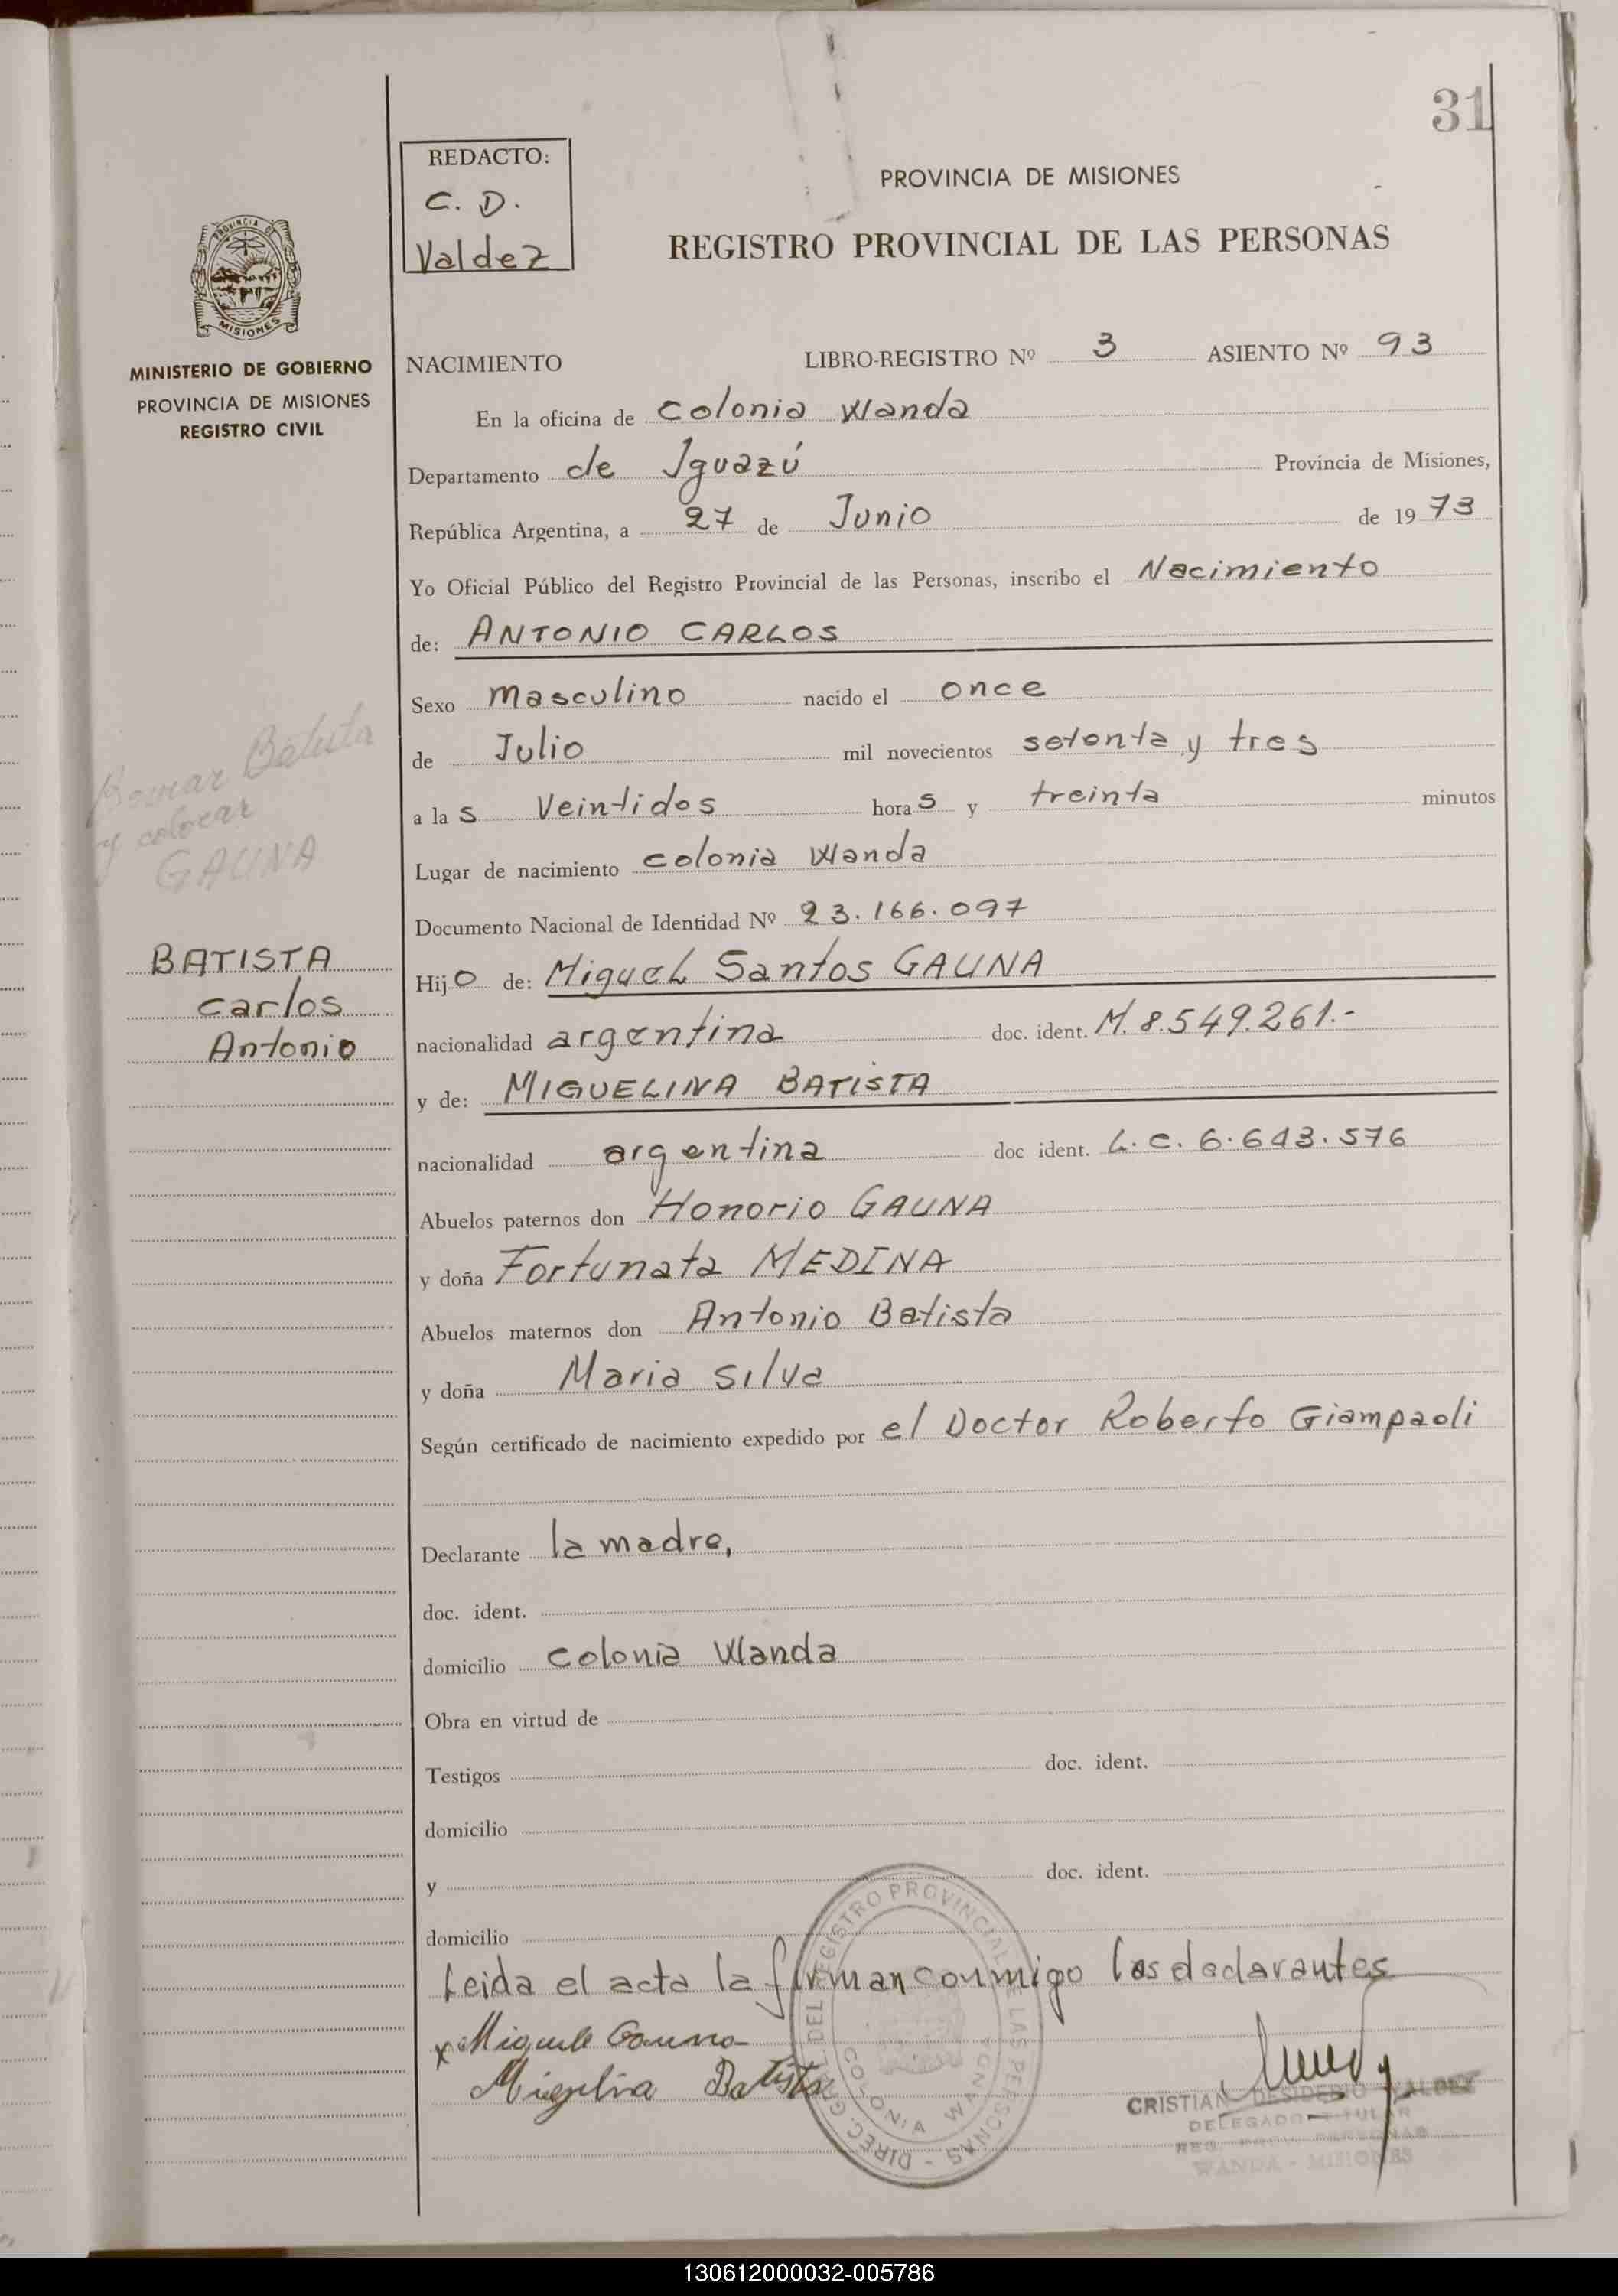 31
REDACTO:
C. D.
Valdez
PROVINCIA DE MISIONES
REGISTRO PROVINCIAL DE LAS PERSONAS
PROVINCIA DE
MISIONES
MINISTERIO DE GOBIERNO
PROVINCIA DE MISIONES
REGISTRO CIVIL
NACIMIENTO LIBRO-REGISTRO Nº 3 ASIENTO Nº 93
En la oficina de Colonia Wanda
Departamento de Iguazú Provincia de Misiones,
República Argentina, a 27 de Junio de 1973
Yo Oficial Público del Registro Provincial de las Personas, inscribo el Nacimiento
de: ANTONIO CARLOS
Sexo Masculino nacido el once
de Julio mil novecientos setenta y tres
a las Veintidos horas y treinta minutos
Lugar de nacimiento Colonia Wanda
Documento Nacional de Identidad Nº 23.166.097
Hijo de: Miguel Santos GAUNA
nacionalidad argentina doc. ident. M. 8.549.261.-
y de: MIGUELINA BATISTA
nacionalidad argentina doc ident. L.C. 6.643.576
Abuelos paternos don Honorio GAUNA
y doña Fortunata MEDINA
Abuelos maternos don Antonio Batista
y doña Maria Silva
Según certificado de nacimiento expedido por el Doctor Roberto Giampaoli
Declarante la madre,
doc. ident.
domicilio Colonia Wanda
Obra en virtud de
Testigos doc. ident.
domicilio
y doc. ident.
domicilio
Leida el acta la firman conmigo los declarantes
x Miguel Gauna
Miguelina Batista
y colocar
GAUNA
BATISTA
Carlos
Antonio
DIREC. GRAL. DEL REGISTRO PROVINCIAL DE LAS PERSONAS -
COLONIA WANDA
CRISTIAN DESIDERIO VALDEZ
DELEGADO TITULAR
REG. PROV. PERSONAS
WANDA - MISIONES
130612000032-005786